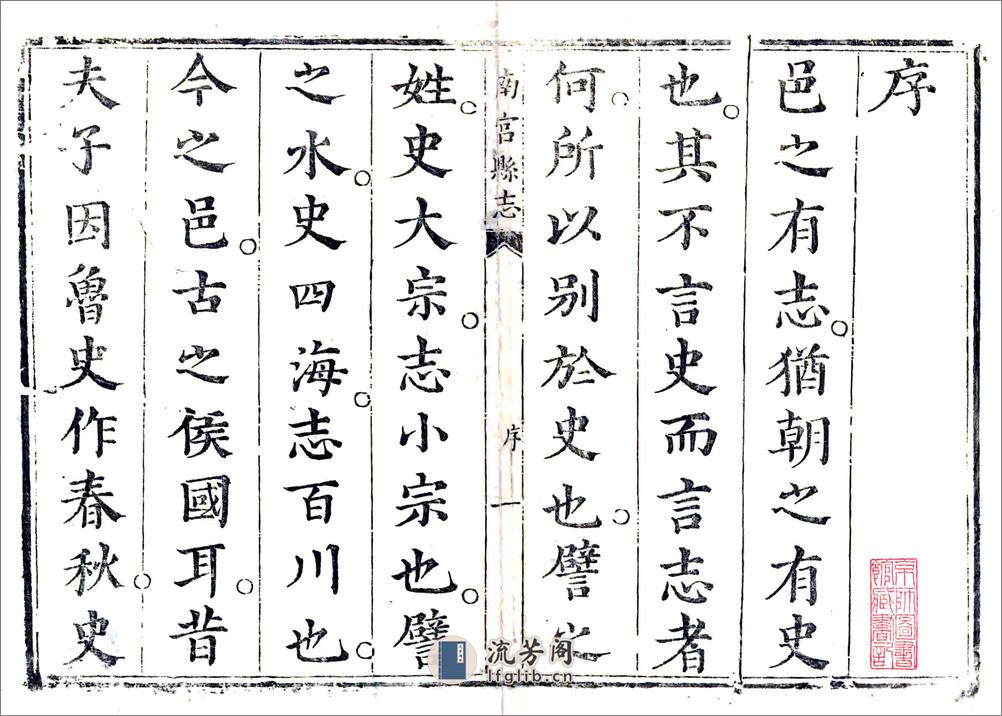 序
邑之有志猶朝之有史
也其不言史而言志者
何所以别於史也譬之
南宫縣志
序
一
姓史大宗志小宗也譬
之水史四海志百川也
今之邑古之侯國耳昔
夫子因魯史作春秋史
京師圖書
館藏書記
流芳阁
lfglib.cn